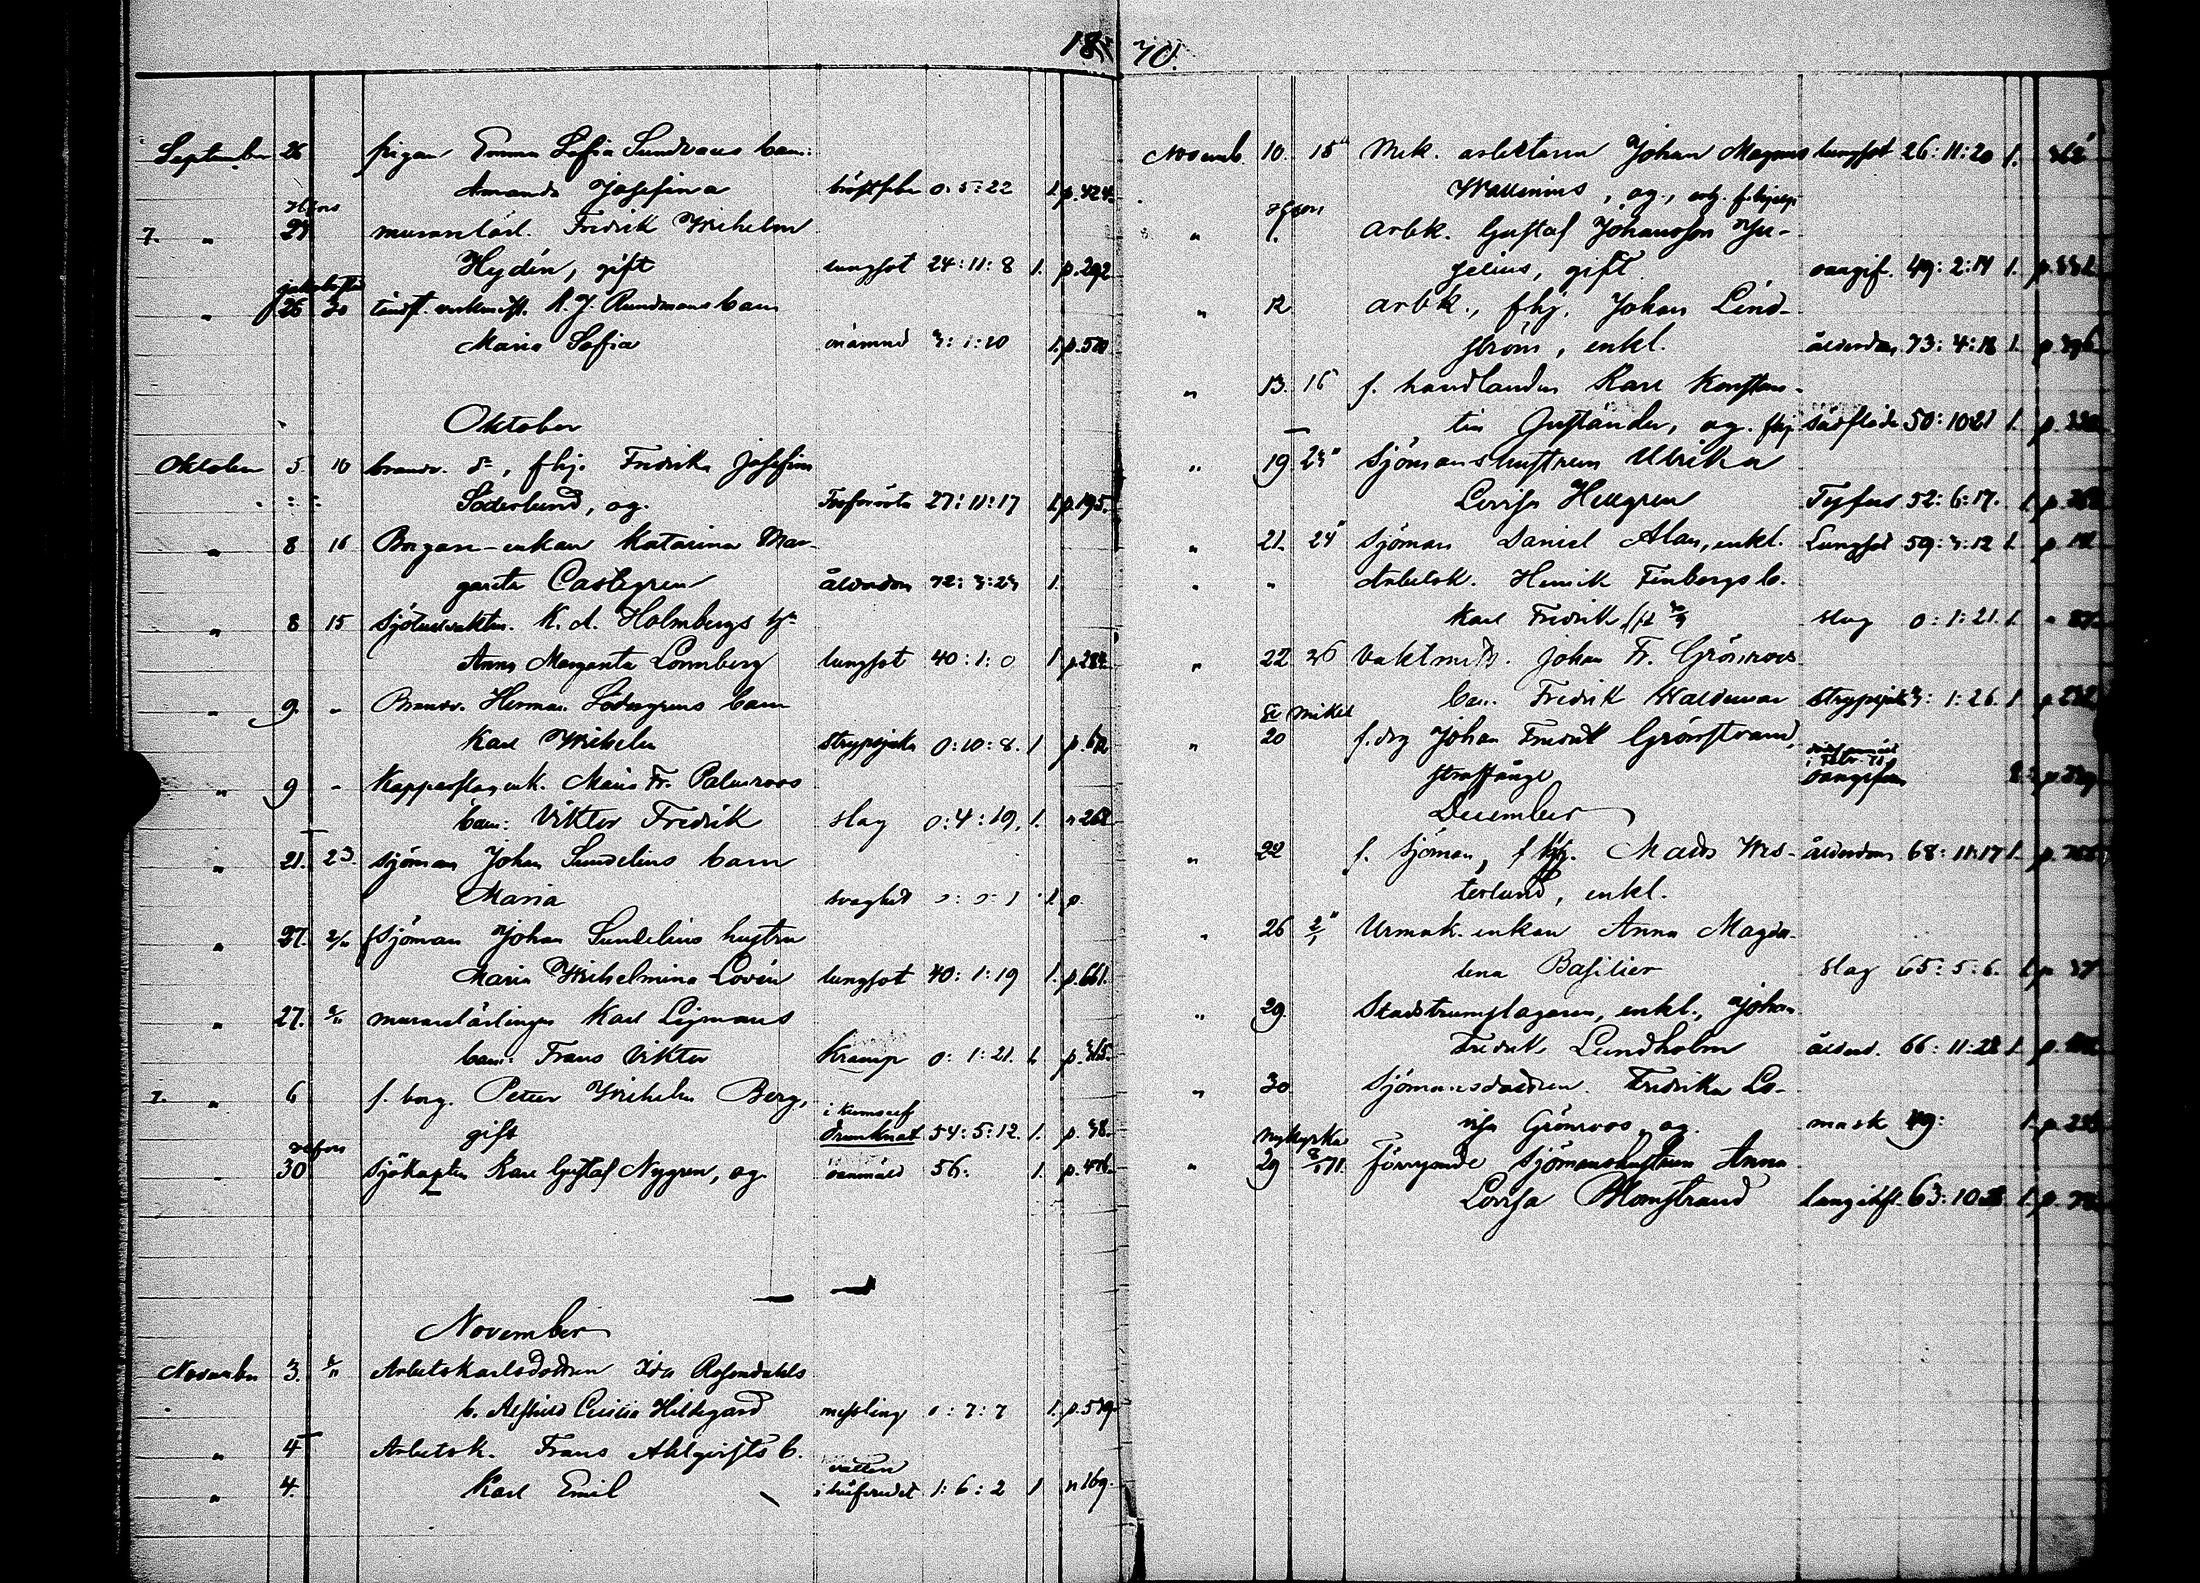 1870.
September 26 pigan Emma Sofia Sundvars barn:
Amanda Josefina 0:5:22 1. p.424.
Hfors
7. " 29 murarelärl. Fredrik Wilhelm
Hydén, gift lungsot 24:11:8 1. p.292
" 26 30 Rundmans barn
Maria Sofia onämnd 3:1:20 1. p.520
Oktober
Oktober 5 10 brandv. dr, fhj. Fredrika Josefina
Söderlund, og. 27:11:17 1. p.195.
" 8 16 Borgare-enkan Katarina Mar-
gareta Castegren ålderdom 72:3:23 1.
" 8 15 K. A. Holmbergs hu
Anna Margareta Lönnberg lungsot 40:1:0 1 p.284
" 9. " Brandv. Herman Södergrens barn
Karl Wilhelm strypsjuka 0:10:8. 1 p.62
" 9 " Kopparslag.enk. Maria Fr. Palmroos
barn: Viktor Fredrik slag 0:4:19. 1. " 268
" 21. 23. sjöman Johan Sundelius barn
Maria svaghet 0:0:1 1. p
" 27. 2/11 sjöman Johan Sundelius hustru
Maria Wilhelmina Lovén lungsot 40:1:19 1. p.661.
" 27. 2/11 murarelärlingen Karl Lijmans
barn: Frans Viktor Kramp 0:1:21. 1. p.365.
7. " 6 f. borg. Petter Wilhelm Berg,
gift drunknat 54:5:12. 1. p.38.
Hfors
" 30 Sjökapten Karl Gustaf Nygren, og. oanmäld 56. 1. p.476.
November
November 3. 6/11 Arbetskarlsdottren Ida Rosendahls
b. Alfhild Cecilia Hildegard messling 0:7:7 1. p.579
" 4 Arbetsk. Frans Ahlqvists b.
" 4. Karl Emil vatten i hufvudet 1:6:2 1 " 169.
Novemb. 10. 15 Mek. arbetaren Johan Magnus lungsot 26:11:20 1.
Wallenius, og.,
Hfors
" 1. Arbk. Gustaf Johansson Ju-
selius, gift oangif. 49:2:14 1.
" 12 Arbk., fhj. Johan Lind-
ström, enkl. ålderdom 73:4:18 1.
" 13. 16 f. handlanden Karl Konstan-
tin Justander, og. fhj 50:10:21 1.
" 19 23 Sjömanshustrun Ulrika
Lovisa Hellgren Tyfus 52:6:17. 1.
" 21. 24 Sjöman Daniel Alan, enkl. Lungsot 59:3:12 1.
" " Arbetsk. Henrik Finbergs b.
Karl Fredrik slag 0:1:21. 1.
" 22 26 Vaktmäst. Johan Fr. Grönroos
barn Fredrik Waldemar strypsjuk 3:1:26 1.
St Mikel
" 20 f. drg Johan Fredrik Grönstrand,
straffånge oangifven
December
" 22 f. Sjöman, fhj. Mats Wes- ålderdom 68:11:17 1.
terlund, enkl.
" 26 2/1 Urmak.-enkan Anna Magda-
lena Basilier slag 65:5:6. 1. p 37
" 29 Stadstrumslagaren, enkl., Johan
Fredrik Lundholm ålderd. 66:11:28 1.
" 30 Sjömansdottren Fredrika Lo-
visa Grönroos, og. mask 49: 1.
Nykyrka
" 29 71. Förrymde sjömanshustrun Anna
Lovisa Blomstrand 63:10:28 1.